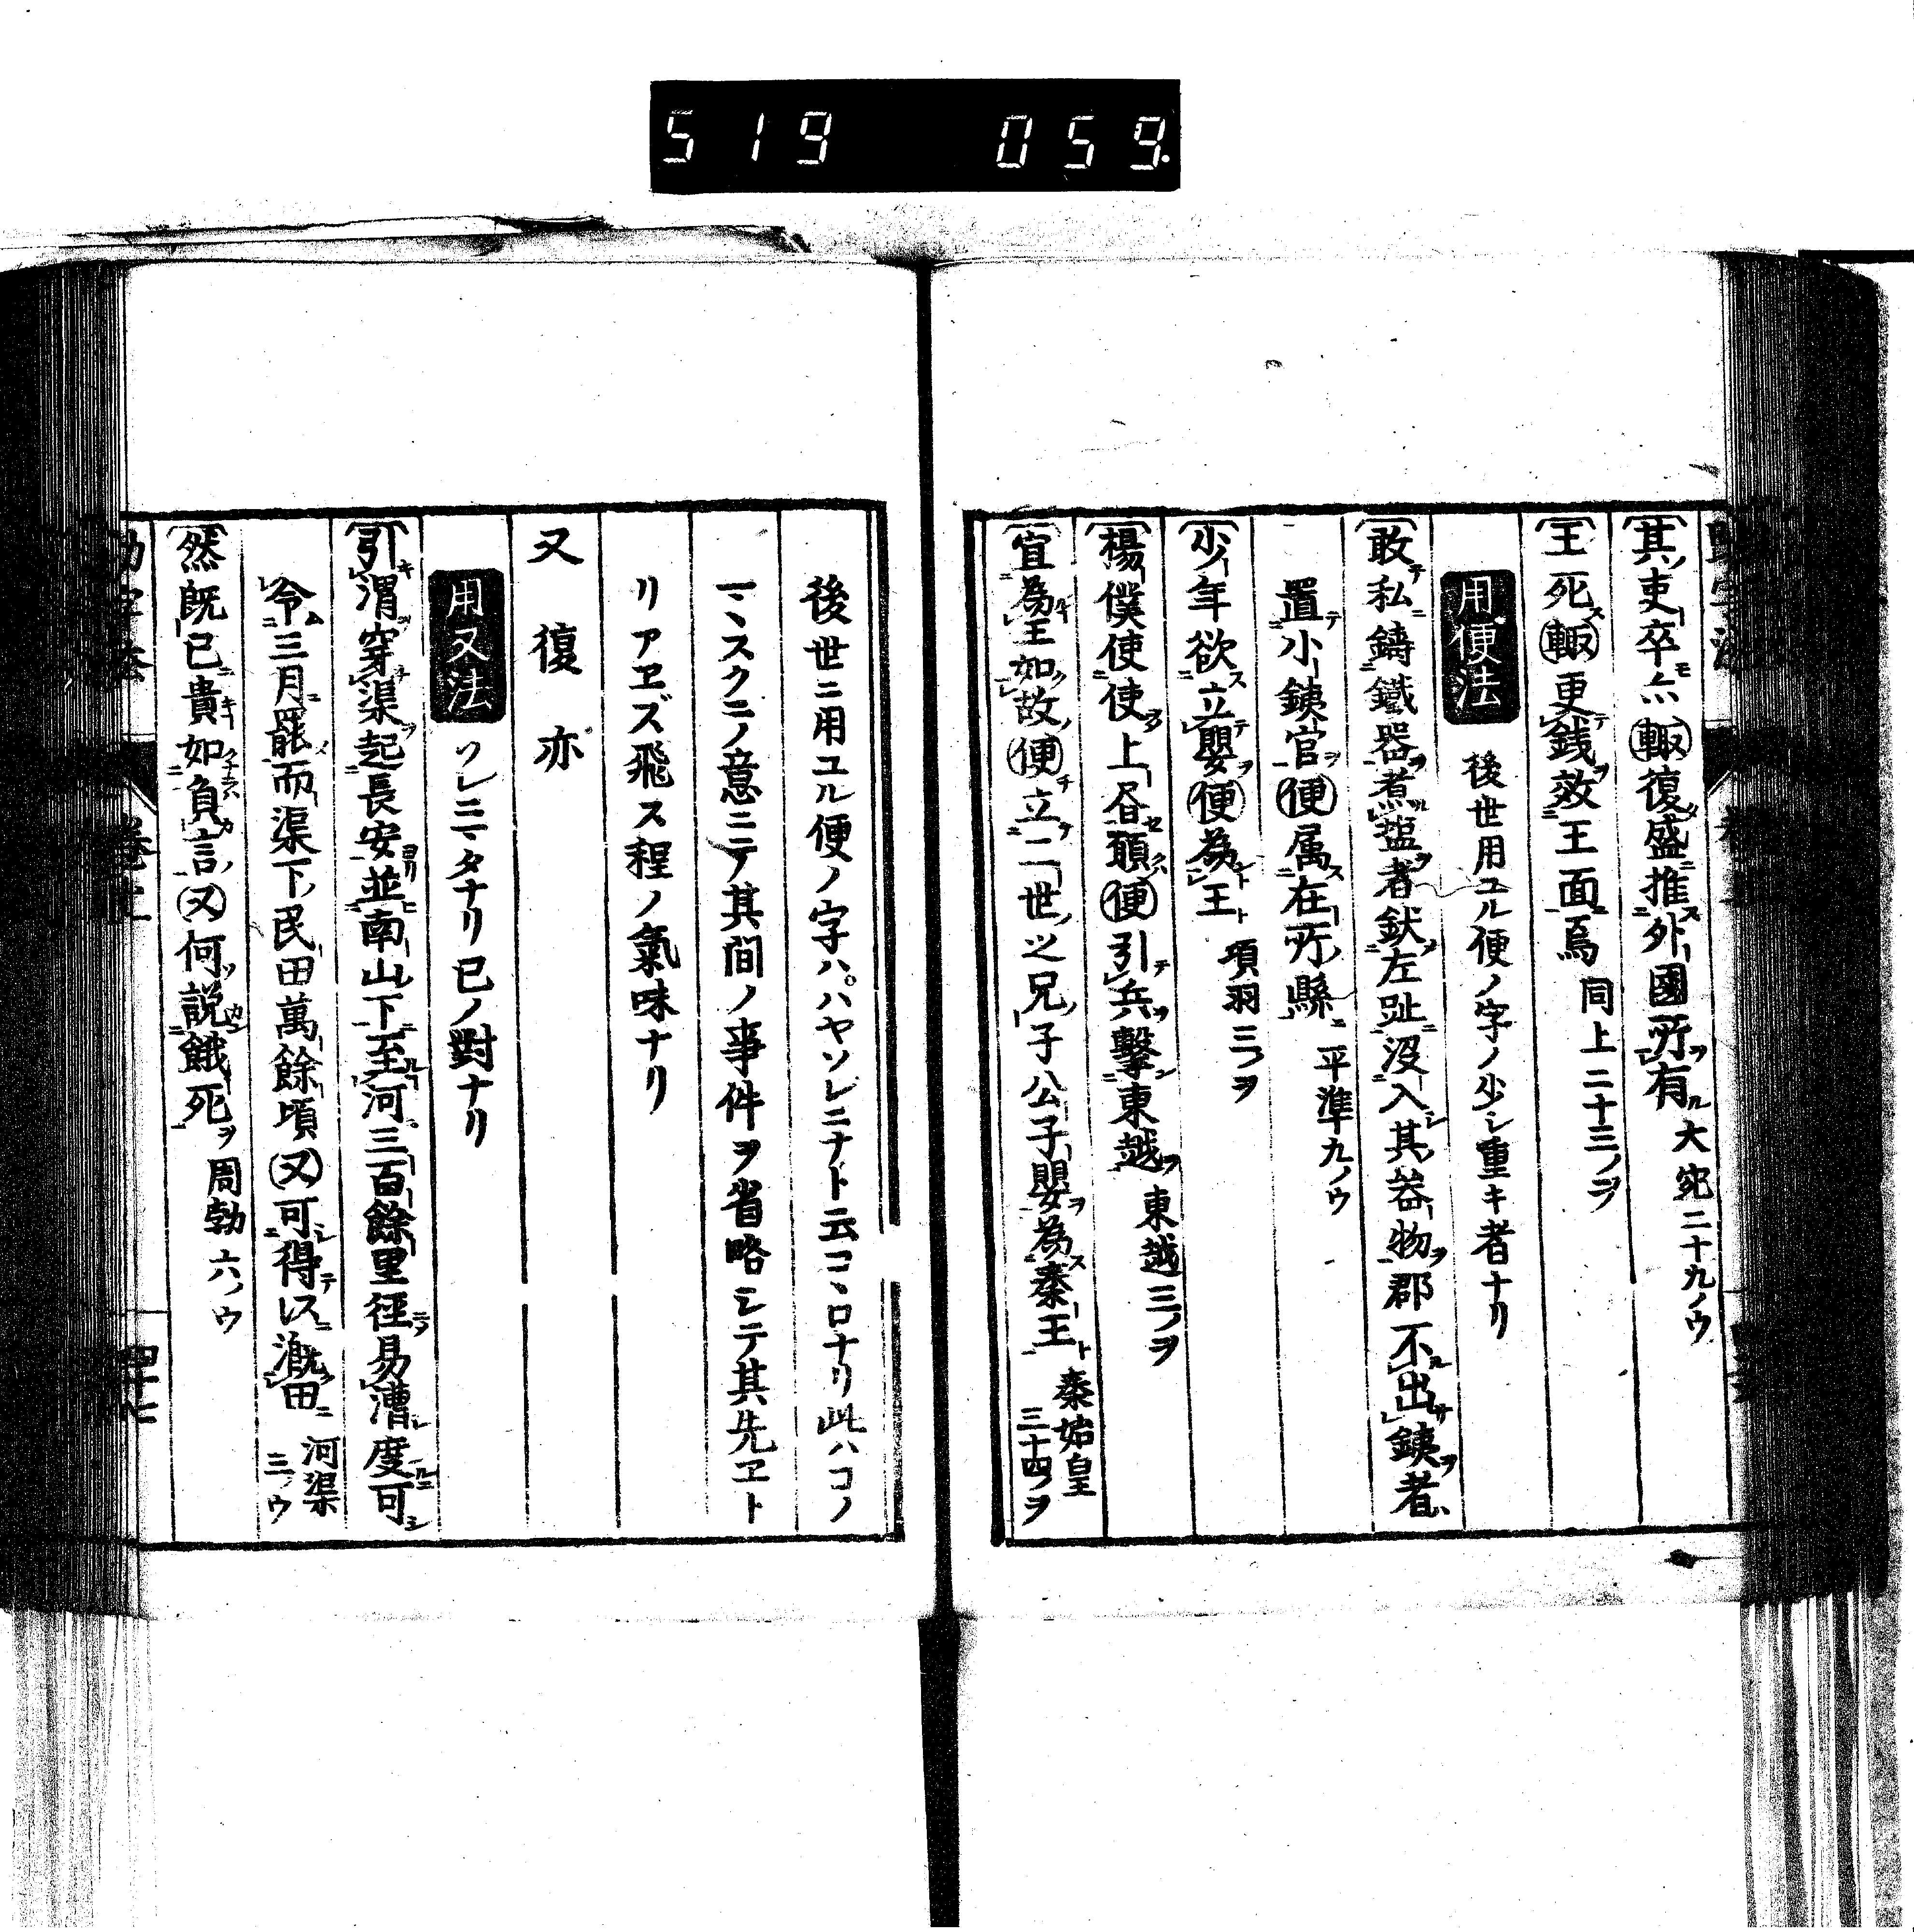 519 059.
其吏卒亦輙復盛推外國所有 大宛二十九ノウ
王死輙更銭效王面焉 同上二十三ノヲ
用便法 後世用ユル便ノ字ノ少シ重キ者ナリ
敢私鑄鐵器煮塩者釱左趾没入其器物郡不出鉄者
置小鉄官便属在所縣 平準九ノウ
少年欲立嬰便為王 項羽三ノヲ
楊僕使使上書願便引兵擊東越 東越三ノヲ
宜為王如故便立二世之兄子公子嬰為秦王 秦始皇三十四ノヲ
後世ニ用ユル便ノ字ハハヤソレニナト云コヽロナリ此ハコノ
マヽスクニノ意ニテ其間ノ事件ヲ省略シテ其先エト
リアエズ飛ス程ノ氣味ナリ
又復亦
用又法 ソレニマタナリ已ノ對ナリ
引渭穿渠起長安並南山下至河三百餘里徑易漕度可
令三月罷而渠下民田萬餘頃又可得以漑田 河渠三ノウ
然既已貴如負言又何説餓死 周勃六ノウ